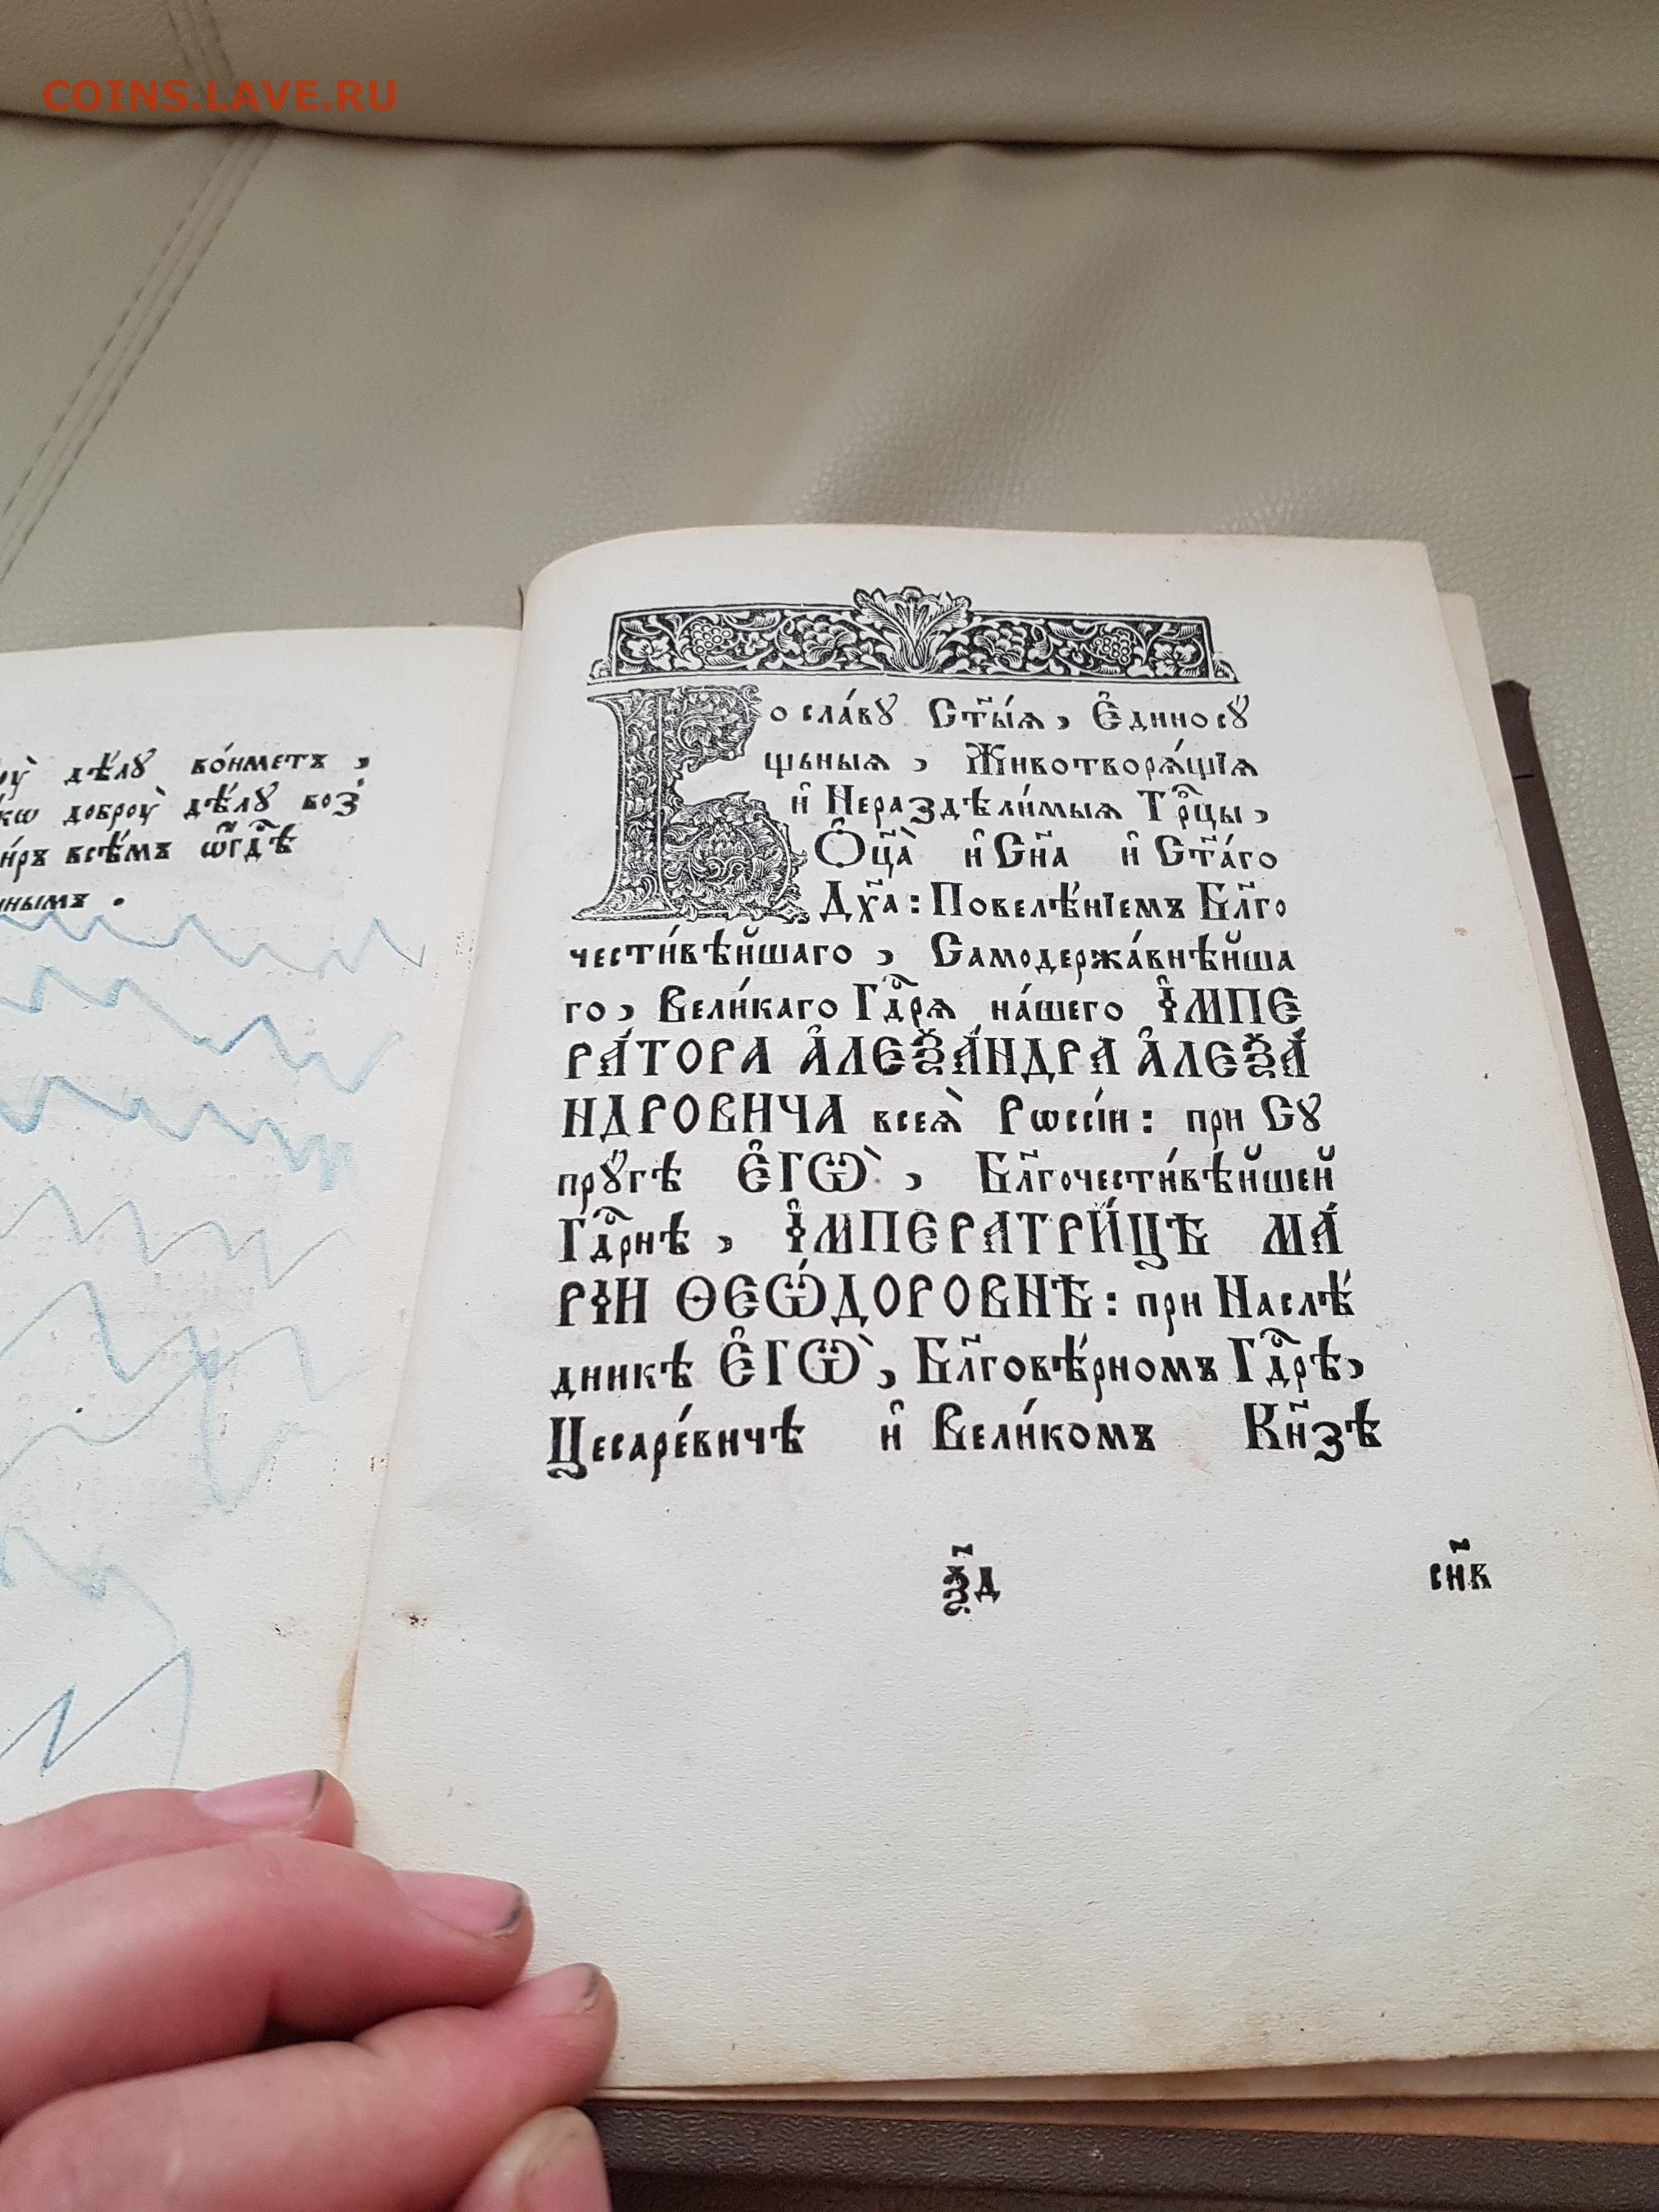 COINS.LAVE.RU
дѣ́лꙋ во́нметъ ,
доброꙋ̀ дѣ́лꙋ воз̾
всѣ́мъ ѿгдѣ
Во сла́вꙋ Ст҃ы́ѧ , Є҆диносꙋ́
щьныѧ , Животворѧ́щїѧ
и҆ Нераздѣли́мыѧ Трⷪ҇цы ,
Ѻ҆ц҃а̀ и҆ Сн҃а и҆ Ст҃а́го
Дх҃а : Повелѣ́нїемъ Бл҃го
чести́вѣйшаго , Самодержа́внѣйша
го , Вели́каго Гдⷭ҇рѧ на́шего І҆МПЕ
РА́ТОРА А҆ЛЕѮА́НДРА А҆ЛЕѮА́
НДРОВИЧА всеѧ̀ Рѡссі́и : при Сꙋ
прꙋ́гѣ Є҆ГѠ̀ , Бл҃гочести́вѣйшей
Гдⷭ҇рнѣ , І҆МПЕРАТРИ́ЦѢ МА́
РІИ ѲЕѠ́ДОРОВНѢ : при Наслѣ́
дникѣ Є҆ГѠ̀ , Бл҃говѣ́рномъ Гдⷭ҇рѣ ,
Цесаре́вичѣ и҆ Вели́комъ Кн҃зѣ
снв҃